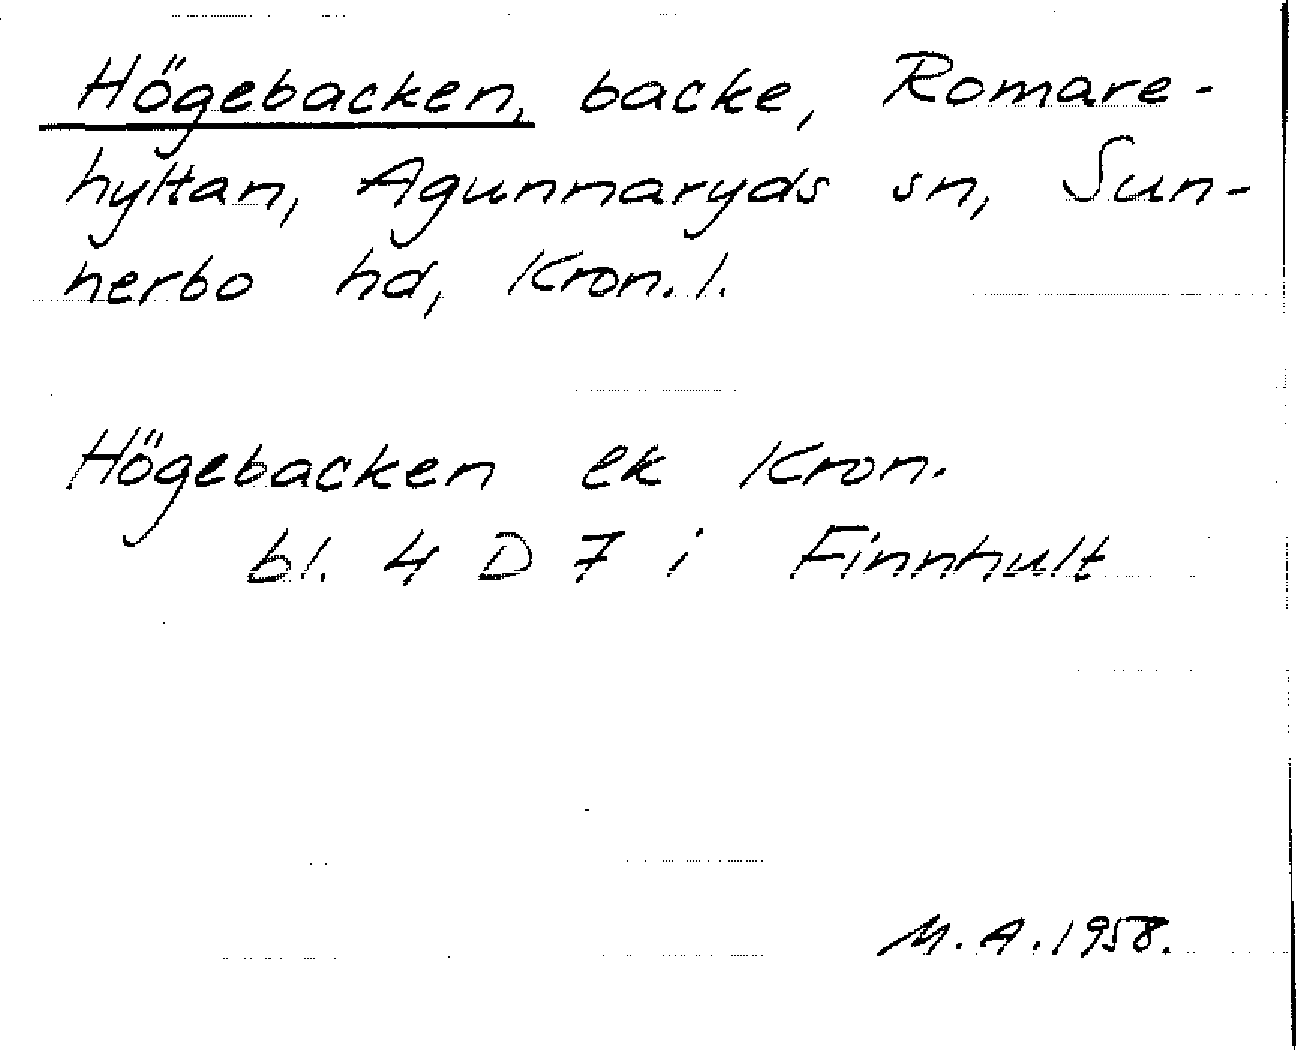 Högebacken, backe, Romare-
hyltan, Agunnaryds sn, Sun-
nerbo hd, Kron. l.
Högebacken ek Kron.
bl. 4 D 7 i Finnhult
M. A. 1958.